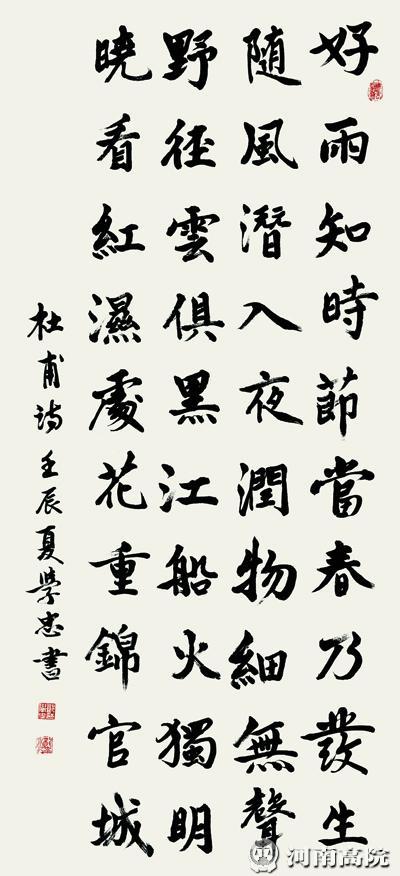 好雨知時節當春乃發生
隨風潛入夜潤物細無聲
野徑雲俱黑江船火獨明
曉看紅濕處花重錦官城
杜甫詩壬辰夏學忠書
河南高院